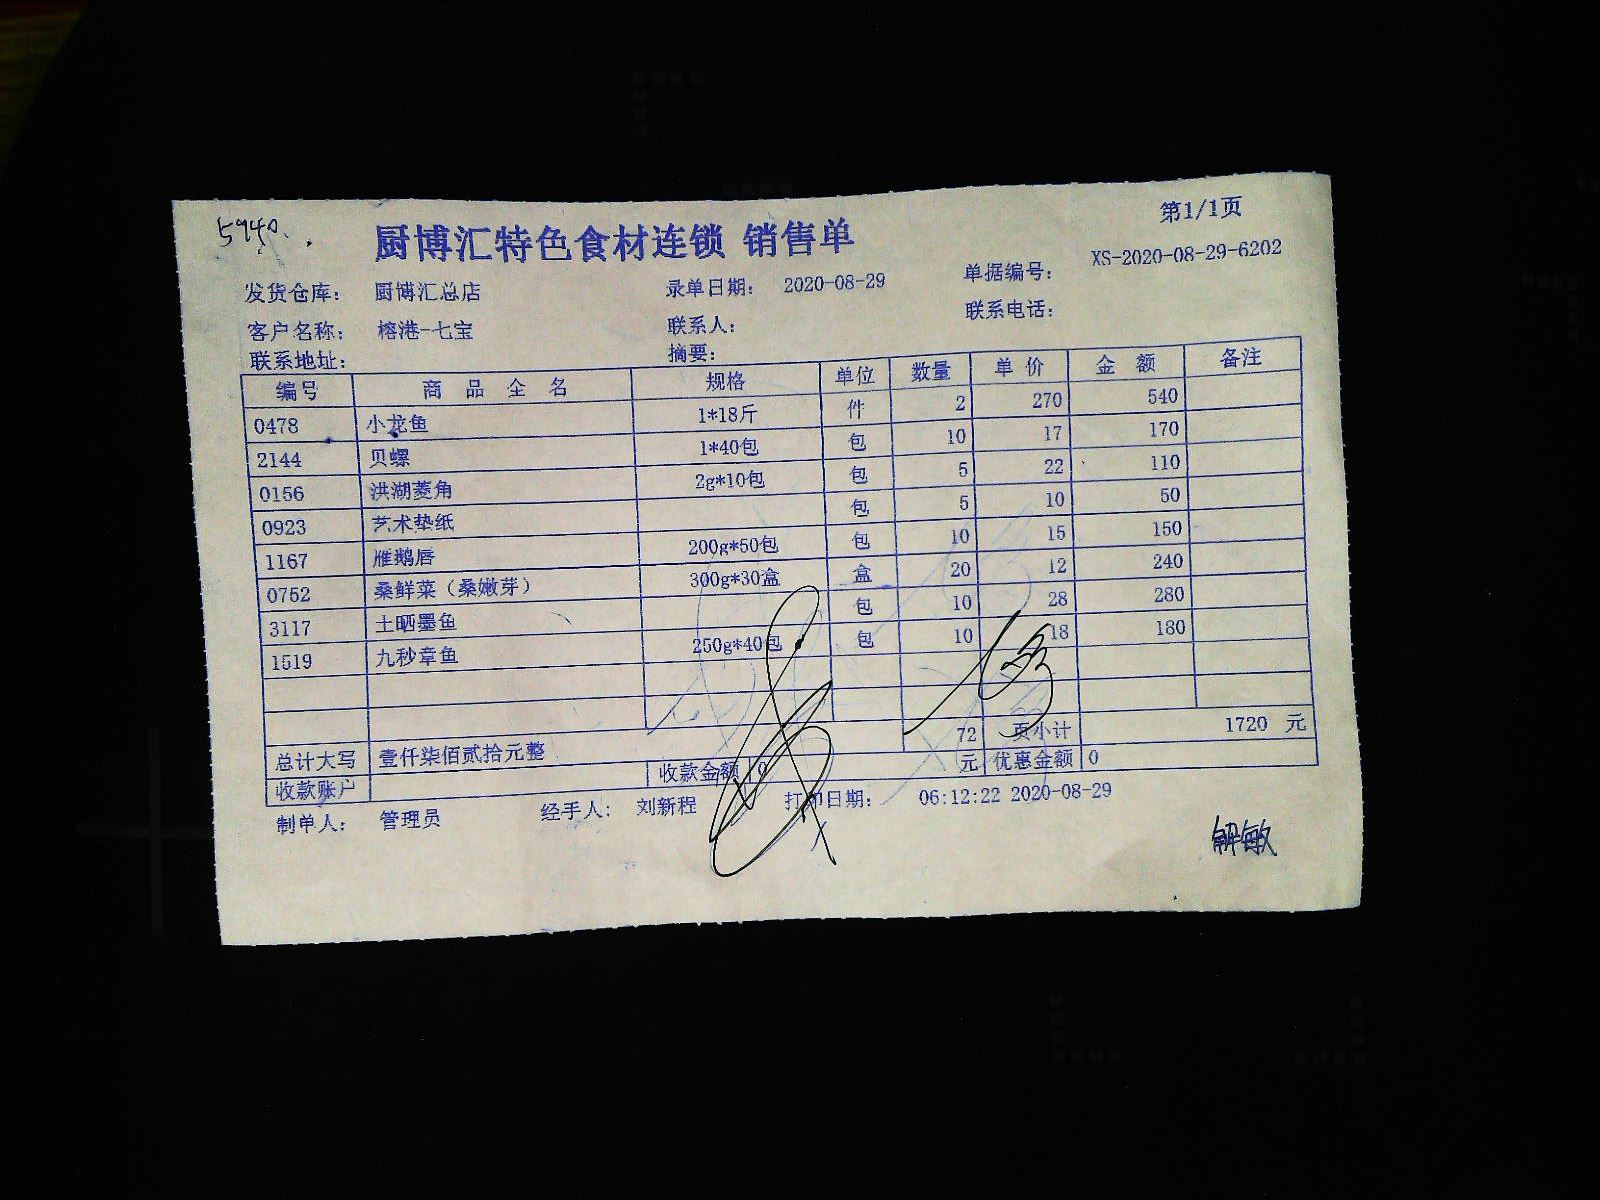 5940.
第1/1页
厨博汇特色食材连锁 销售单
发货仓库： 厨博汇总店 录单日期： 2020-08-29 单据编号： XS-2020-08-29-6202
客户名称： 榕港-七宝 联系人： 联系电话：
联系地址： 摘要：
编号 商品全名 规格 单位 数量 单价 金额 备注
0478 小龙鱼 1*18斤 件 2 270 540
2144 贝螺 1*40包 包 10 17 170
0156 洪湖菱角 2g*10包 包 5 22 110
0923 艺术垫纸 包 5 10 50
1167 雁鹅唇 200g*50包 包 10 15 150
0752 桑鲜菜（桑嫩芽） 300g*30盒 盒 20 12 240
3117 土晒墨鱼 包 10 28 280
1519 九秒章鱼 250g*40包 包 10 18 180
72 页小计 1720 元
总计大写 壹仟柒佰贰拾元整
收款账户 收款金额 0 元 优惠金额 0
制单人： 管理员 经手人： 刘新程 打印日期： 06:12:22 2020-08-29
解敏